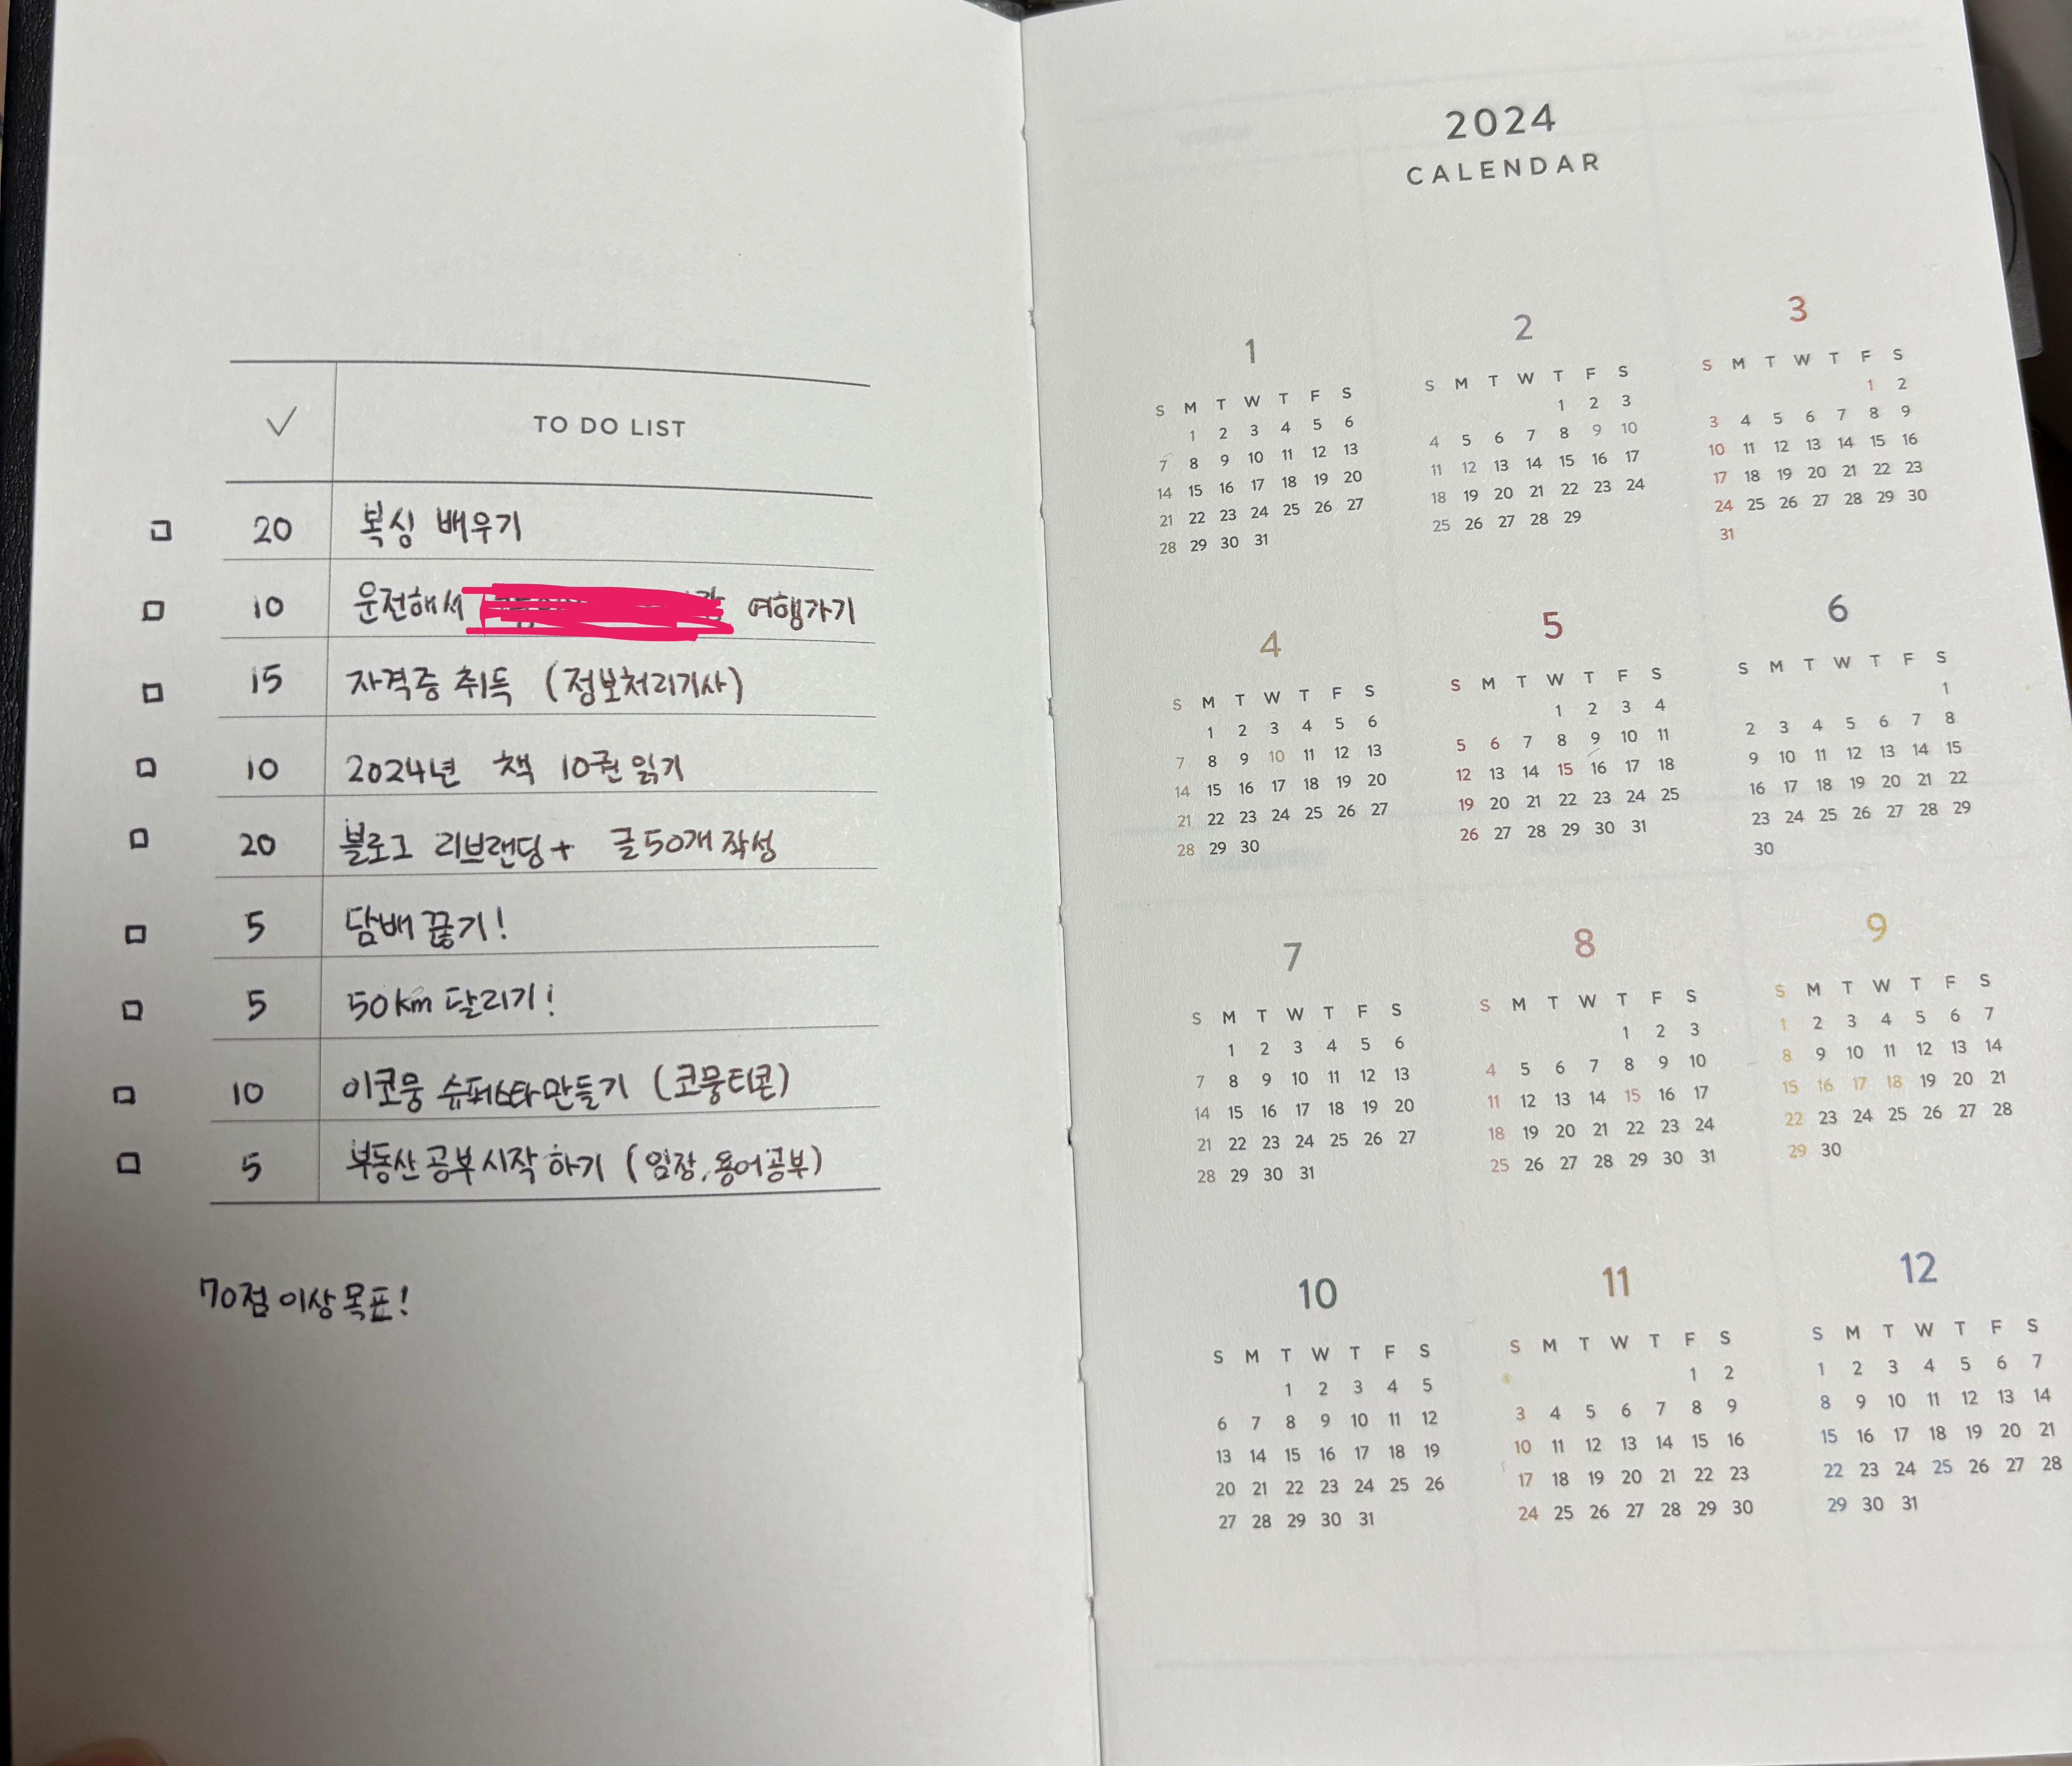 ✓ TO DO LIST
□ 20 복싱 배우기
□ 10 운전해서 여행가기
□ 15 자격증 취득 (정보처리기사)
□ 10 2024년 책 10권 읽기
□ 20 블로그 리브랜딩 + 글 50개 작성
□ 5 담배 끊기!
□ 5 50km 달리기!
□ 10 이코뭉 슈퍼스타만들기 (코뭉티콘)
□ 5 부동산 공부 시작하기 (임장, 용어공부)
70점 이상 목표!
2024
CALENDAR
1
S M T W T F S
1 2 3 4 5 6
7 8 9 10 11 12 13
14 15 16 17 18 19 20
21 22 23 24 25 26 27
28 29 30 31
2
S M T W T F S
1 2 3
4 5 6 7 8 9 10
11 12 13 14 15 16 17
18 19 20 21 22 23 24
25 26 27 28 29
3
S M T W T F S
1 2
3 4 5 6 7 8 9
10 11 12 13 14 15 16
17 18 19 20 21 22 23
24 25 26 27 28 29 30
31
4
S M T W T F S
1 2 3 4 5 6
7 8 9 10 11 12 13
14 15 16 17 18 19 20
21 22 23 24 25 26 27
28 29 30
5
S M T W T F S
1 2 3 4
5 6 7 8 9 10 11
12 13 14 15 16 17 18
19 20 21 22 23 24 25
26 27 28 29 30 31
6
S M T W T F S
1
2 3 4 5 6 7 8
9 10 11 12 13 14 15
16 17 18 19 20 21 22
23 24 25 26 27 28 29
30
7
S M T W T F S
1 2 3 4 5 6
7 8 9 10 11 12 13
14 15 16 17 18 19 20
21 22 23 24 25 26 27
28 29 30 31
8
S M T W T F S
1 2 3
4 5 6 7 8 9 10
11 12 13 14 15 16 17
18 19 20 21 22 23 24
25 26 27 28 29 30 31
9
S M T W T F S
1 2 3 4 5 6 7
8 9 10 11 12 13 14
15 16 17 18 19 20 21
22 23 24 25 26 27 28
29 30
10
S M T W T F S
1 2 3 4 5
6 7 8 9 10 11 12
13 14 15 16 17 18 19
20 21 22 23 24 25 26
27 28 29 30 31
11
S M T W T F S
1 2
3 4 5 6 7 8 9
10 11 12 13 14 15 16
17 18 19 20 21 22 23
24 25 26 27 28 29 30
12
S M T W T F S
1 2 3 4 5 6 7
8 9 10 11 12 13 14
15 16 17 18 19 20 21
22 23 24 25 26 27 28
29 30 31